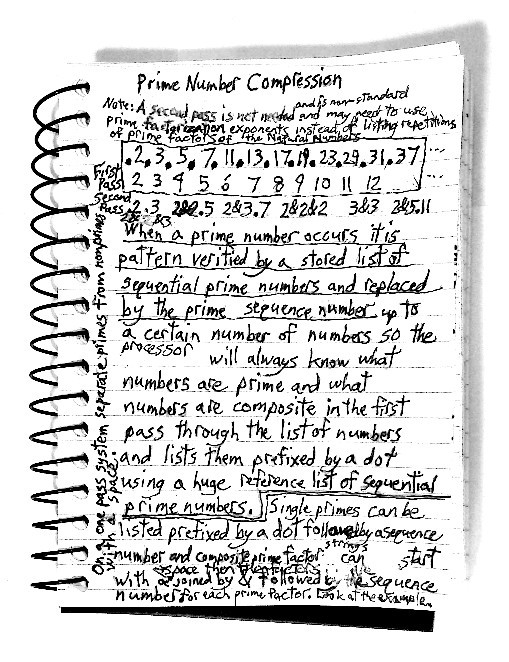 Prime Number Compression
Note: A second pass is not needed and is non-standard
and may need to use
prime factorization exponents instead of listing repetitions
of prime factors of the Natural Numbers
.2.3.5.7.11.13.17.19.23.29.31.37
First Pass 2 3 4 5 6 7 8 9 10 11 12
Second Pass .2.3 2&2.5 2&3.7 2&2&2 3&3 2&5.11
When a prime number occurs it is
pattern verified by a stored list of
sequential prime numbers and replaced
by the prime sequence number up to
a certain number of numbers so the
processor will always know what
numbers are prime and what
numbers are composite in the first
pass through the list of numbers
and lists them prefixed by a dot
using a huge reference list of sequential
prime numbers. Single primes can be
listed prefixed by a dot followed by a sequence
number and composite prime factor strings can start
with a space then the factors
joined by & followed by the sequence
number for each prime factor. Look at the example.
On a one pass system separate primes from nonprimes
with a space.